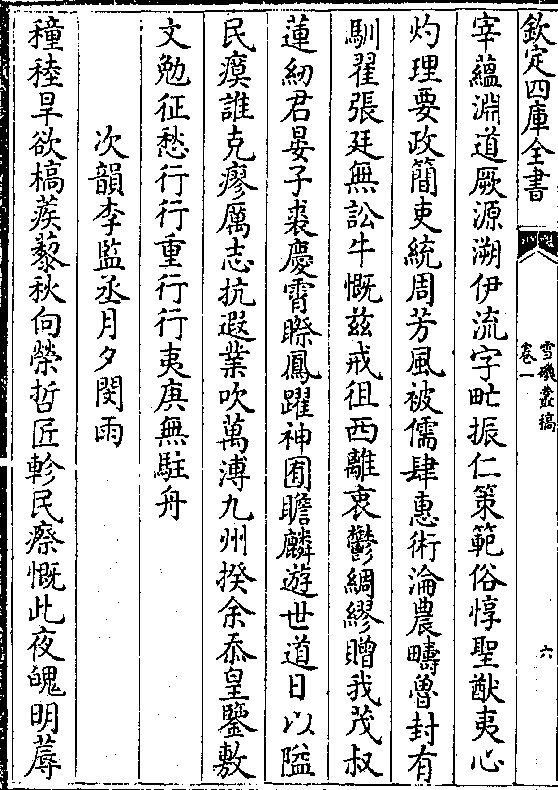 欽定四庫全書
雪磯叢稿
卷一
六
宰蘊淵道厥源溯伊流字甿振仁策範俗惇聖猷夷心
灼理要政簡吏統周芳風被儒肆惠術淪農疇魯封有
馴翟張廷無訟牛慨兹戒徂西離衷鬱綢繆贈我茂叔
蓮紉君晏子裘慶霄睽鳳躍神囿瞻麟遊世道日以隘
民瘼誰克瘳厲志抗遐業吹萬溥九州揆余忝皇鑒敷
文勉征愁行行重行行夷庚無駐舟
次韻李監丞月夕閔雨
穜稑旱欲槁蒺藜秋向榮哲匠軫民瘵慨此夜魄明蓐